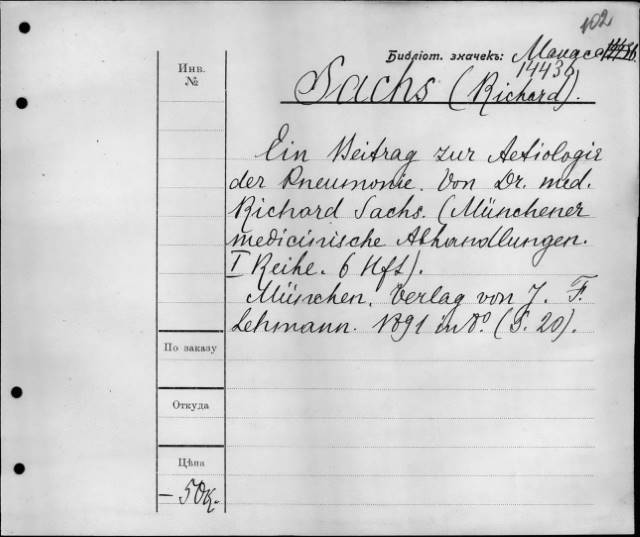 102
Инв.
№
Библіот. значекъ:
14436
Sachs (Richard).
Ein Beitrag zur Aetiologie
der Pneumonie. Von Dr. med.
Richard Sachs. (Münchener
medicinische Abhandlungen.
I Reihe. 6 Hft).
München. Verlag von J. F.
Lehmann. 1891 in 8°. (S. 20).
По заказу
Откуда
Цѣна
– 50к.